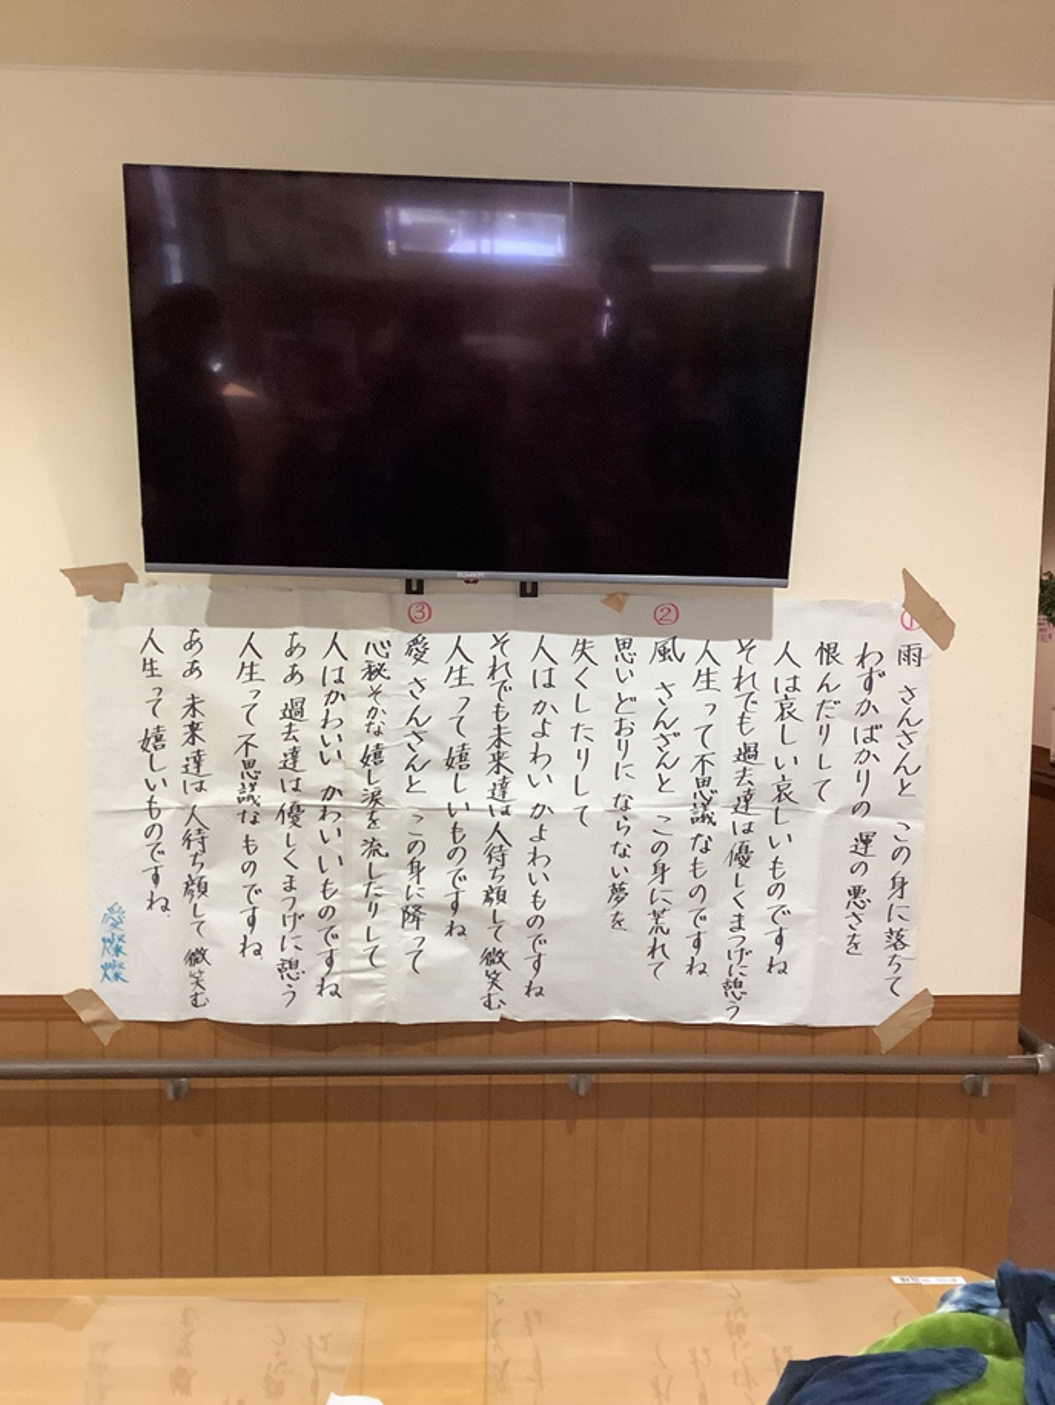 ①
雨 さんさんと この身に落ちて
わずかばかりの 運の悪さを
恨んだりして
人は哀しい哀しいものですね
それでも過去達は優しくまつげに憩う
人生って不思議なものですね
②
風 さんざんと この身に荒れて
思いどおりに ならない夢を
失くしたりして
人はかよわい かよわいものですね
それでも未来達は人待ち顔して 微笑む
人生って嬉しいものですね
③
愛 さんさんと この身に降って
心秘そかな嬉し涙を 流したりして
人はかわいい かわいいものですね
ああ 過去達は優しくまつげに憩う
人生って不思議な ものですね
ああ 未来達は 人待ち顔して 微笑む
人生って嬉しいものですね
愛燦燦